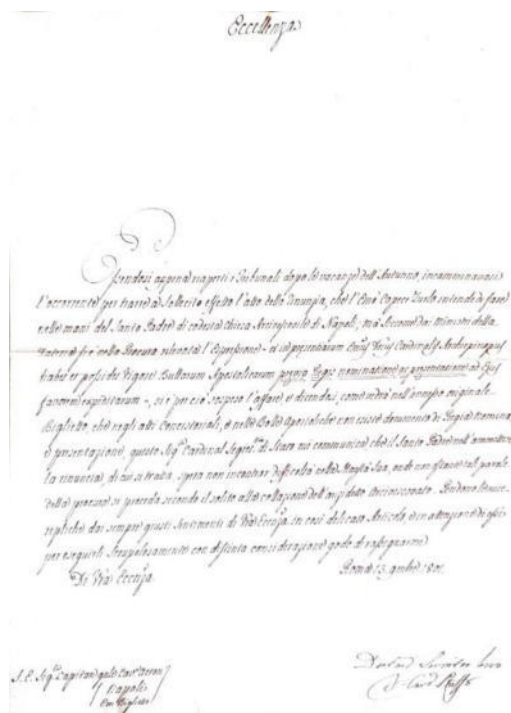 Eccellenza
Essendosi appena riaperti i Tribunali dopo le vacanze dell'Autunno, incamminavasi
l'occorrente per trarre a sollecito effetto l'atto della rinunzia, che l'Emo Capece Zurlo intende di fare
nelle mani del Santo Padre di codesta Chiesa Arcivescovile di Napoli; ma siccome i Ministri della
nella Procura l'espressione
habet et possidet vigore Bullarum Apostolicarum nominatione et presentatione ad Ejus
favorem expeditarum, si è perciò sospeso l'affare e dicendosi, come vedrà nell'annesso originale
Biglietto, che negli atti Concistoriali, e nelle Bolle Apostoliche non esiste documento di Regia Nomina,
e presentazione, questo Sigr. Cardinal Segret. di Stato mi comunica, che il Santo Padre nell'ammettere
la rinuncia, di cui si tratta, spera non incontrar difficoltà nella Maestà Sua, onde non
della procura si proceda secondo il solito alla collazione dell'anzidetto Arcivescovato.
repliche dai sempre giusti sentimenti di Vra Eccnza in così delicato Articolo, e in attenzione di esse
per eseguirle scrupolosamente con distinta considerazione godo di rassegnarmi
Di Vra Eccnza
Roma 13. 9mbre 1801.
S. E. Sigr. Capitan gnle Cavr Acton
Napoli
Con Biglietto
Servitor vero
Card Ruffo